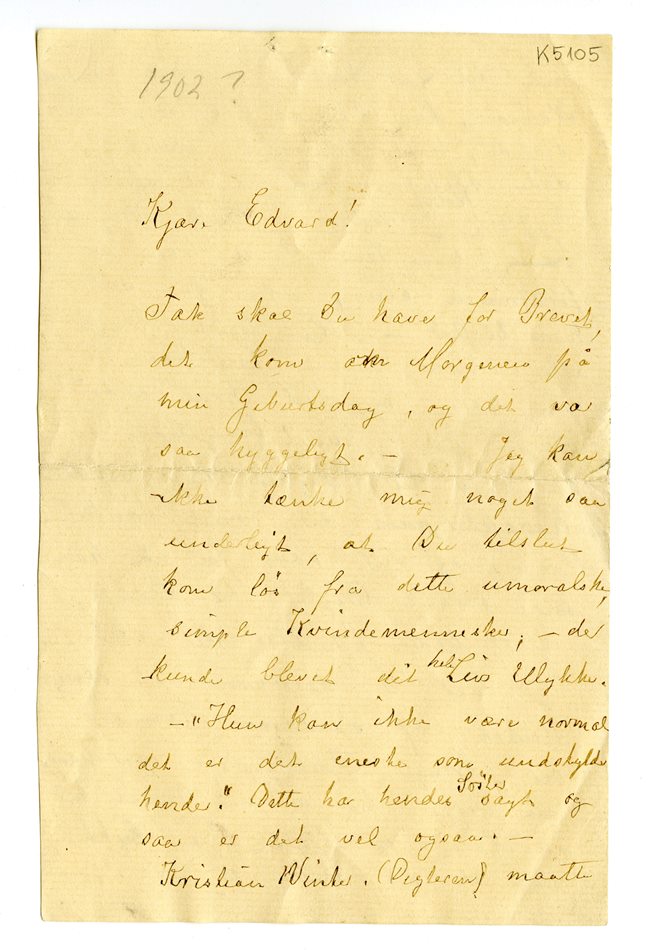 K5105
1902?
Kjære Edvard!
Tak skal Du have for Brevet,
det kom om Morgenen på
min Geburtsdag, og det var
saa hyggeligt. – Jeg kan
ikke tænke mig noget saa
underligt, at Du tilslut
kom lös fra dette umoralske,
simple Kvindemenneske, – det
kunde blevet dit hele Livs Ulykke.
– "Hun kan ikke være normal
det er det eneste som undskylder
hende." Dette har hendes Söster sagt og
saa er det vel ogsaa. –
Kristian Winter. (Digteren) maatte